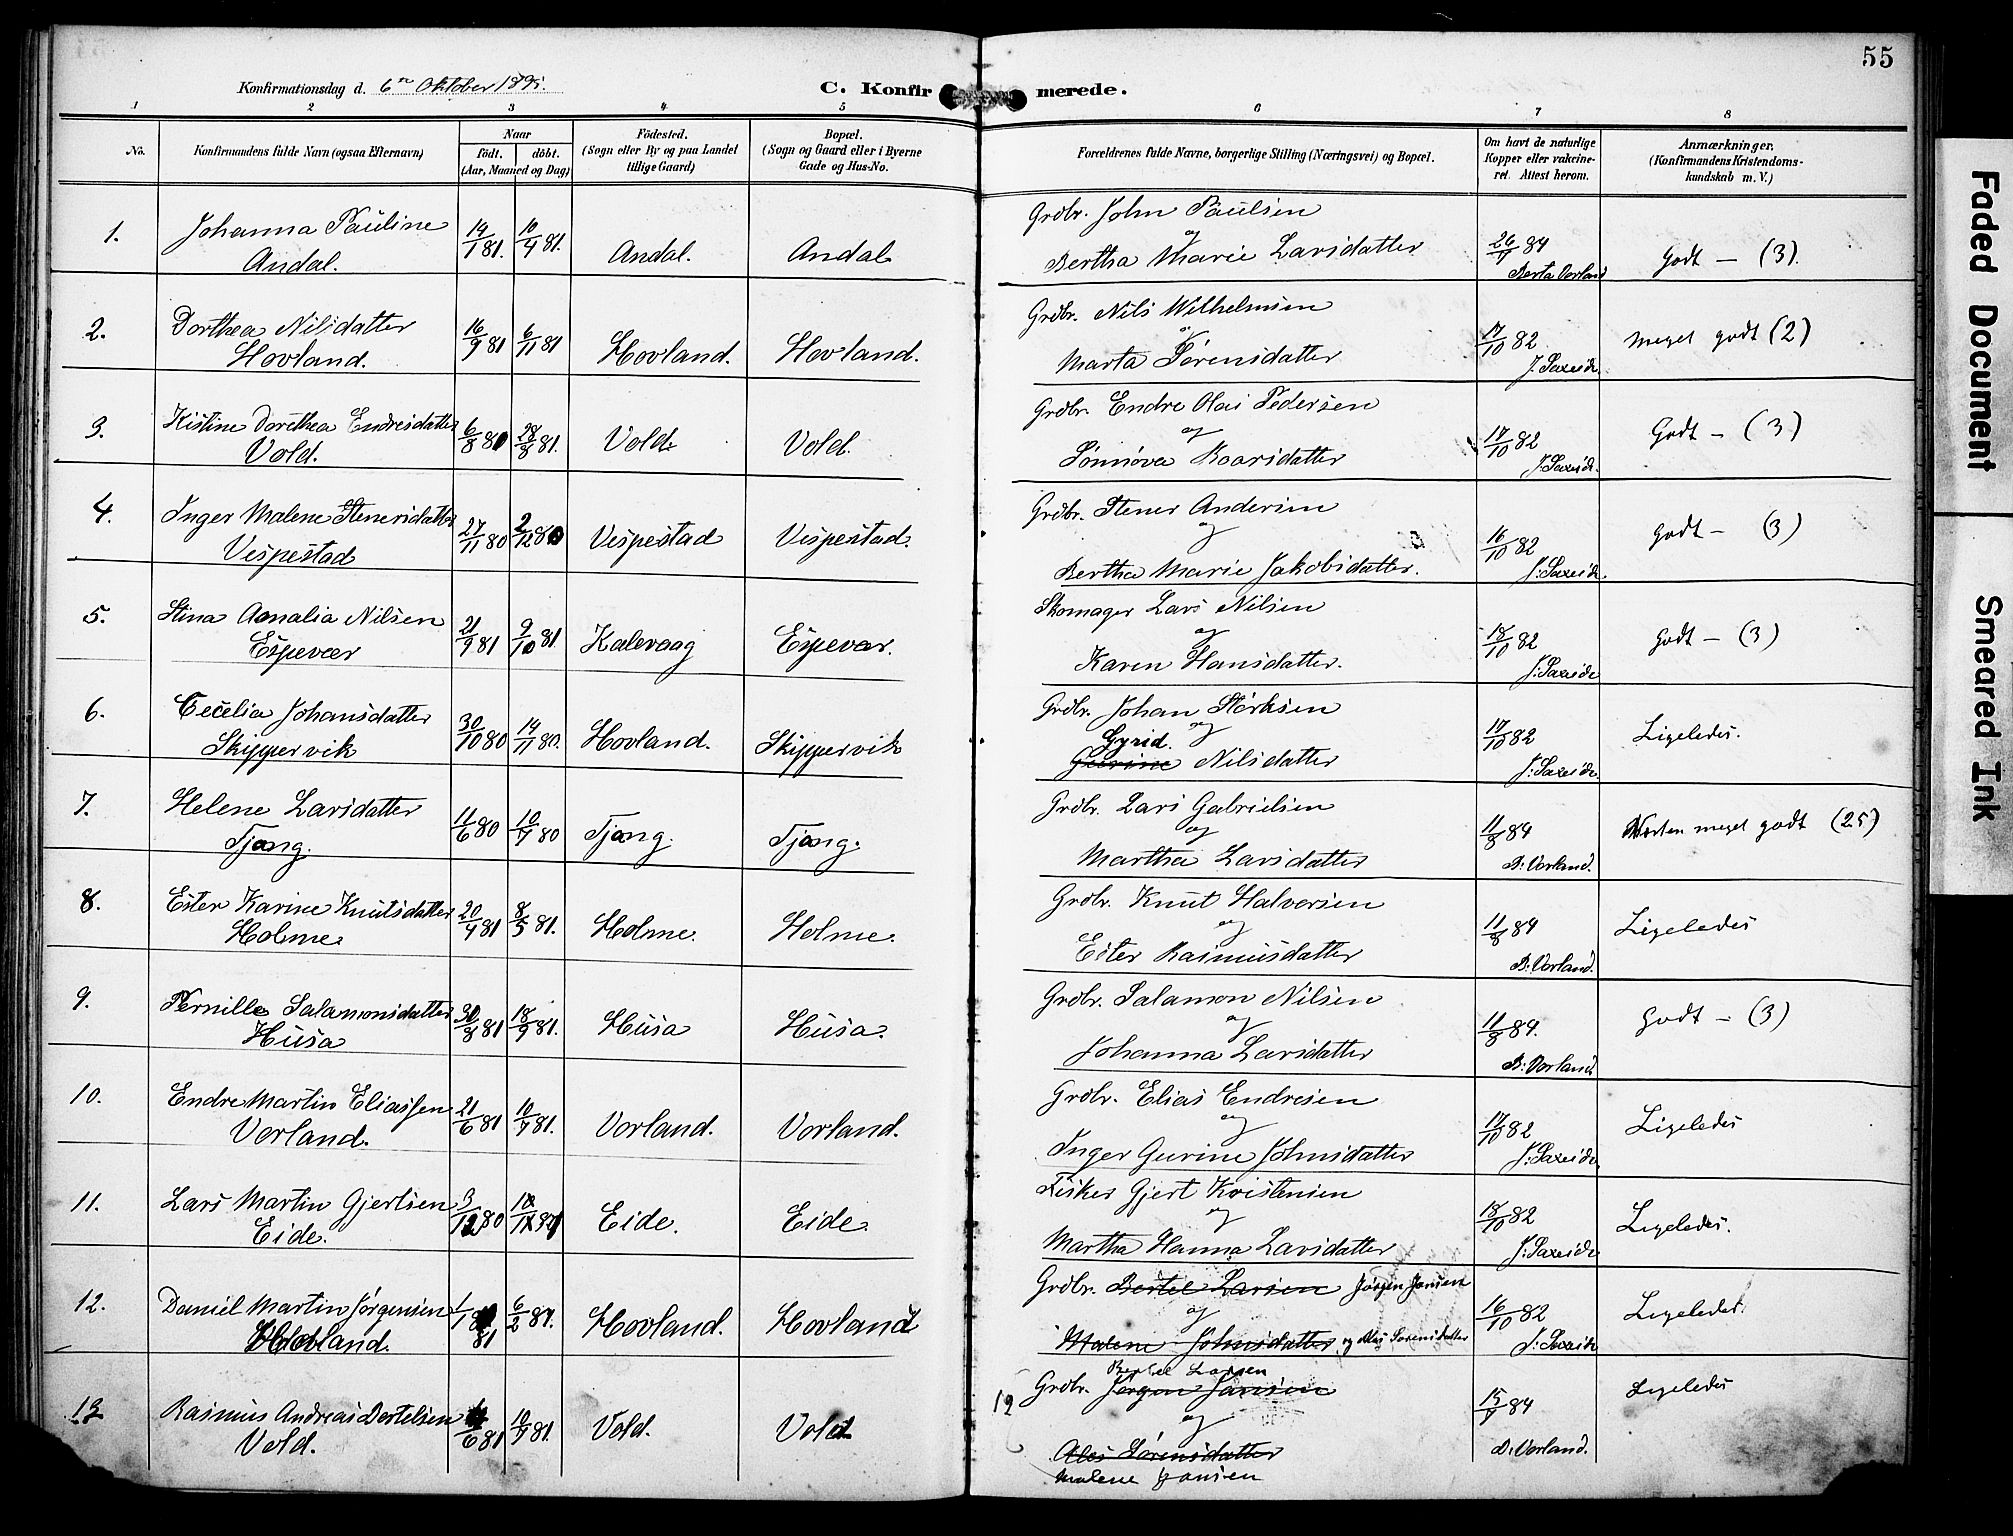 55
Konfirmationsdag d. 6te Oktober 1895.
C. Konfirmerede.
1 2 3 4 5 6 7 8
No.
Konfirmandens fulde Navn (ogsaa Efternavn)
Naar
födt. döbt.
(Aar, Maaned og Dag)
Födested.
(Sogn eller By og paa Landet
tillige Gaard)
Bopæl.
(Sogn og Gaard eller i Byerne
Gade og Hus-No.
Forældrenes fulde Navne, borgerlige Stilling (Næringsvei) og Bopæl.
Om havt de naturlige
Kopper eller vakcine-
ret. Attest herom.
Anmærkninger.
(Konfirmandens Kristendoms-
kundskab m. V.)
1. Johanna Pauline
Andal.
14/1 81. 10/4 81. Andal. Andal
Grdbr. John Paulsen
og
Bertha Marie Larsdatter
26/7 84
Berta Vorland
Godt – (3).
2. Dorthea Nilsdatter
Hovland.
16/9 81 6/11 81 Hovland. Hovland.
Grdbr. Nils Wilhelmsen
og
Marta Sørensdatter
17/10 82
J. Saxeide
Meget godt (2)
3. Kistine Dorethea Endresdatter
Vold.
6/8 81 28/8 81. Vold. Vold.
Grdbr. Endre Olai Pedersen
og
Sønnøva Koarsdatter
17/10 82
J. Saxeide.
Godt – (3)
4. Inger Malene Stenersdatter
Vespestad
27/11 80 2/12 80 Vespestad Vespestad.
Grdbr. Stener Andersen
og
Bertha Marie Jakobsdatter.
16/10 82
J: Saxeide.
Godt – (3)
5. Stina Amalia Nilsen
Espevær
21/9 81 9/10 81. Kalevaag Espevær.
Skomager Lars Nilsen
og
Karen Hansdatter.
18/10 82
J: Saxeide
Godt – (3)
6. Cecelia Johansdatter
Skippervik
30/10 80 14/11 80. Hovland. Skippervik
Grdbr. Johan Størksen
og
Gyrid.
Gurine Nilsdatter
17/10 82
J: Saxeide.
Ligeledes.
7. Helene Larsdatter
Tjong.
11/6 80 10/7 80 Tjong. Tjong.
Grdbr. Lars Gabrielsen
og
Martha Larsdatter
11/8 84
B: Vorland.
Næsten meget godt (2.5)
8. Ester Karine Knutsdatter
Holme.
20/4 81 8/5 81. Holme. Holme.
Grdbr. Knut Halvorsen
og
Ester Rasmusdatter
11/8 84
B: Vorland.
Ligeledes
9. Pernille Salamonsdatter
Husa
30/8 81 18/9 81. Husa Husa.
Grdbr. Salamon Nilsen
og
Johanna Larsdatter
11/8 84.
B: Vorland
Godt – (3)
10. Endre Martin Eliassen
Vorland.
21/6 81 10/7 81. Vorland. Vorland.
Grdbr. Elias Endresen
og
Inger Gurine Johnsdatter
17/10 82
J: Saxeide
Ligeledes
11. Lars Martin Gjertsen
Eide.
3/12 80 Eide. Eide.
Fisker Gjert Kristensen
og
Martha Hanna Larsdatter
18/10 82
J: Saxeide
Ligeledes.
12. Daniel Martin Jørgensen
Hovland.
1/1 81 6/2 81. Hovland. Hovland
Grdbr. Bertel Larsen Jørgen Jansen
og
Malene Johnsdatter og Ales Sørensdatter
16/10 82
J: Saxeide
Ligeledes.
13 Rasmus Andreas Bertelsen
Vold.
/6 81 10/7 81. Vold. Vold
12
Bertel Larsen
Grdbr. Jørgen Jansen
og
Ales Sørensdatter
Malene Jansen
15/9 84
B: Vorland.
Ligeledes
Faded Document
Smeared Ink